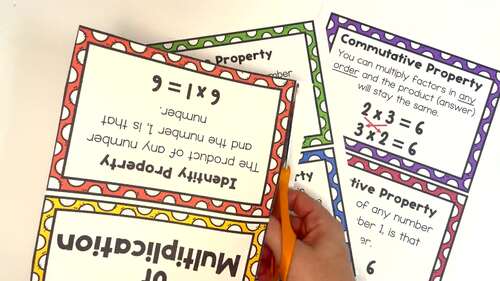 Identity Property
The product of any number
and the number 1, is that
number.
6 x 1 = 6
of
Multiplication
Property
number
Commutative Property
You can multiply factors in any
order and the product (answer)
will stay the same.
2 x 3 = 6
3 x 2 = 6
Property
of any number
1, is that
6